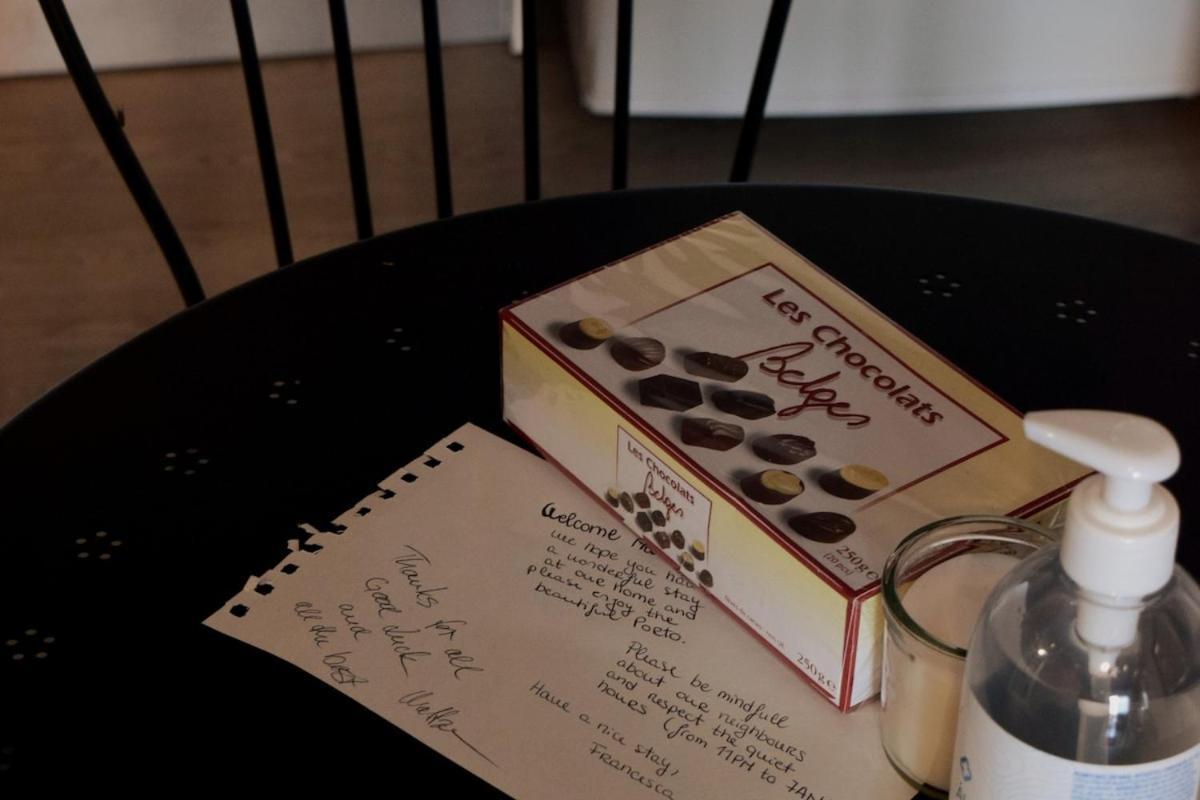 Les Chocolats
Belges
250g e
(20 pcs)
Les Chocolats
Belges
250g e
Welcome
we hope you
a wonderful stay
at our home and
please enjoy the
beautiful Porto.
Please be mindfull
about our neighbours
and respect the quiet
hours (from 11PM to 7AM
Have a nice stay,
Francesca
Thanks for all
Good luck
and
all the best